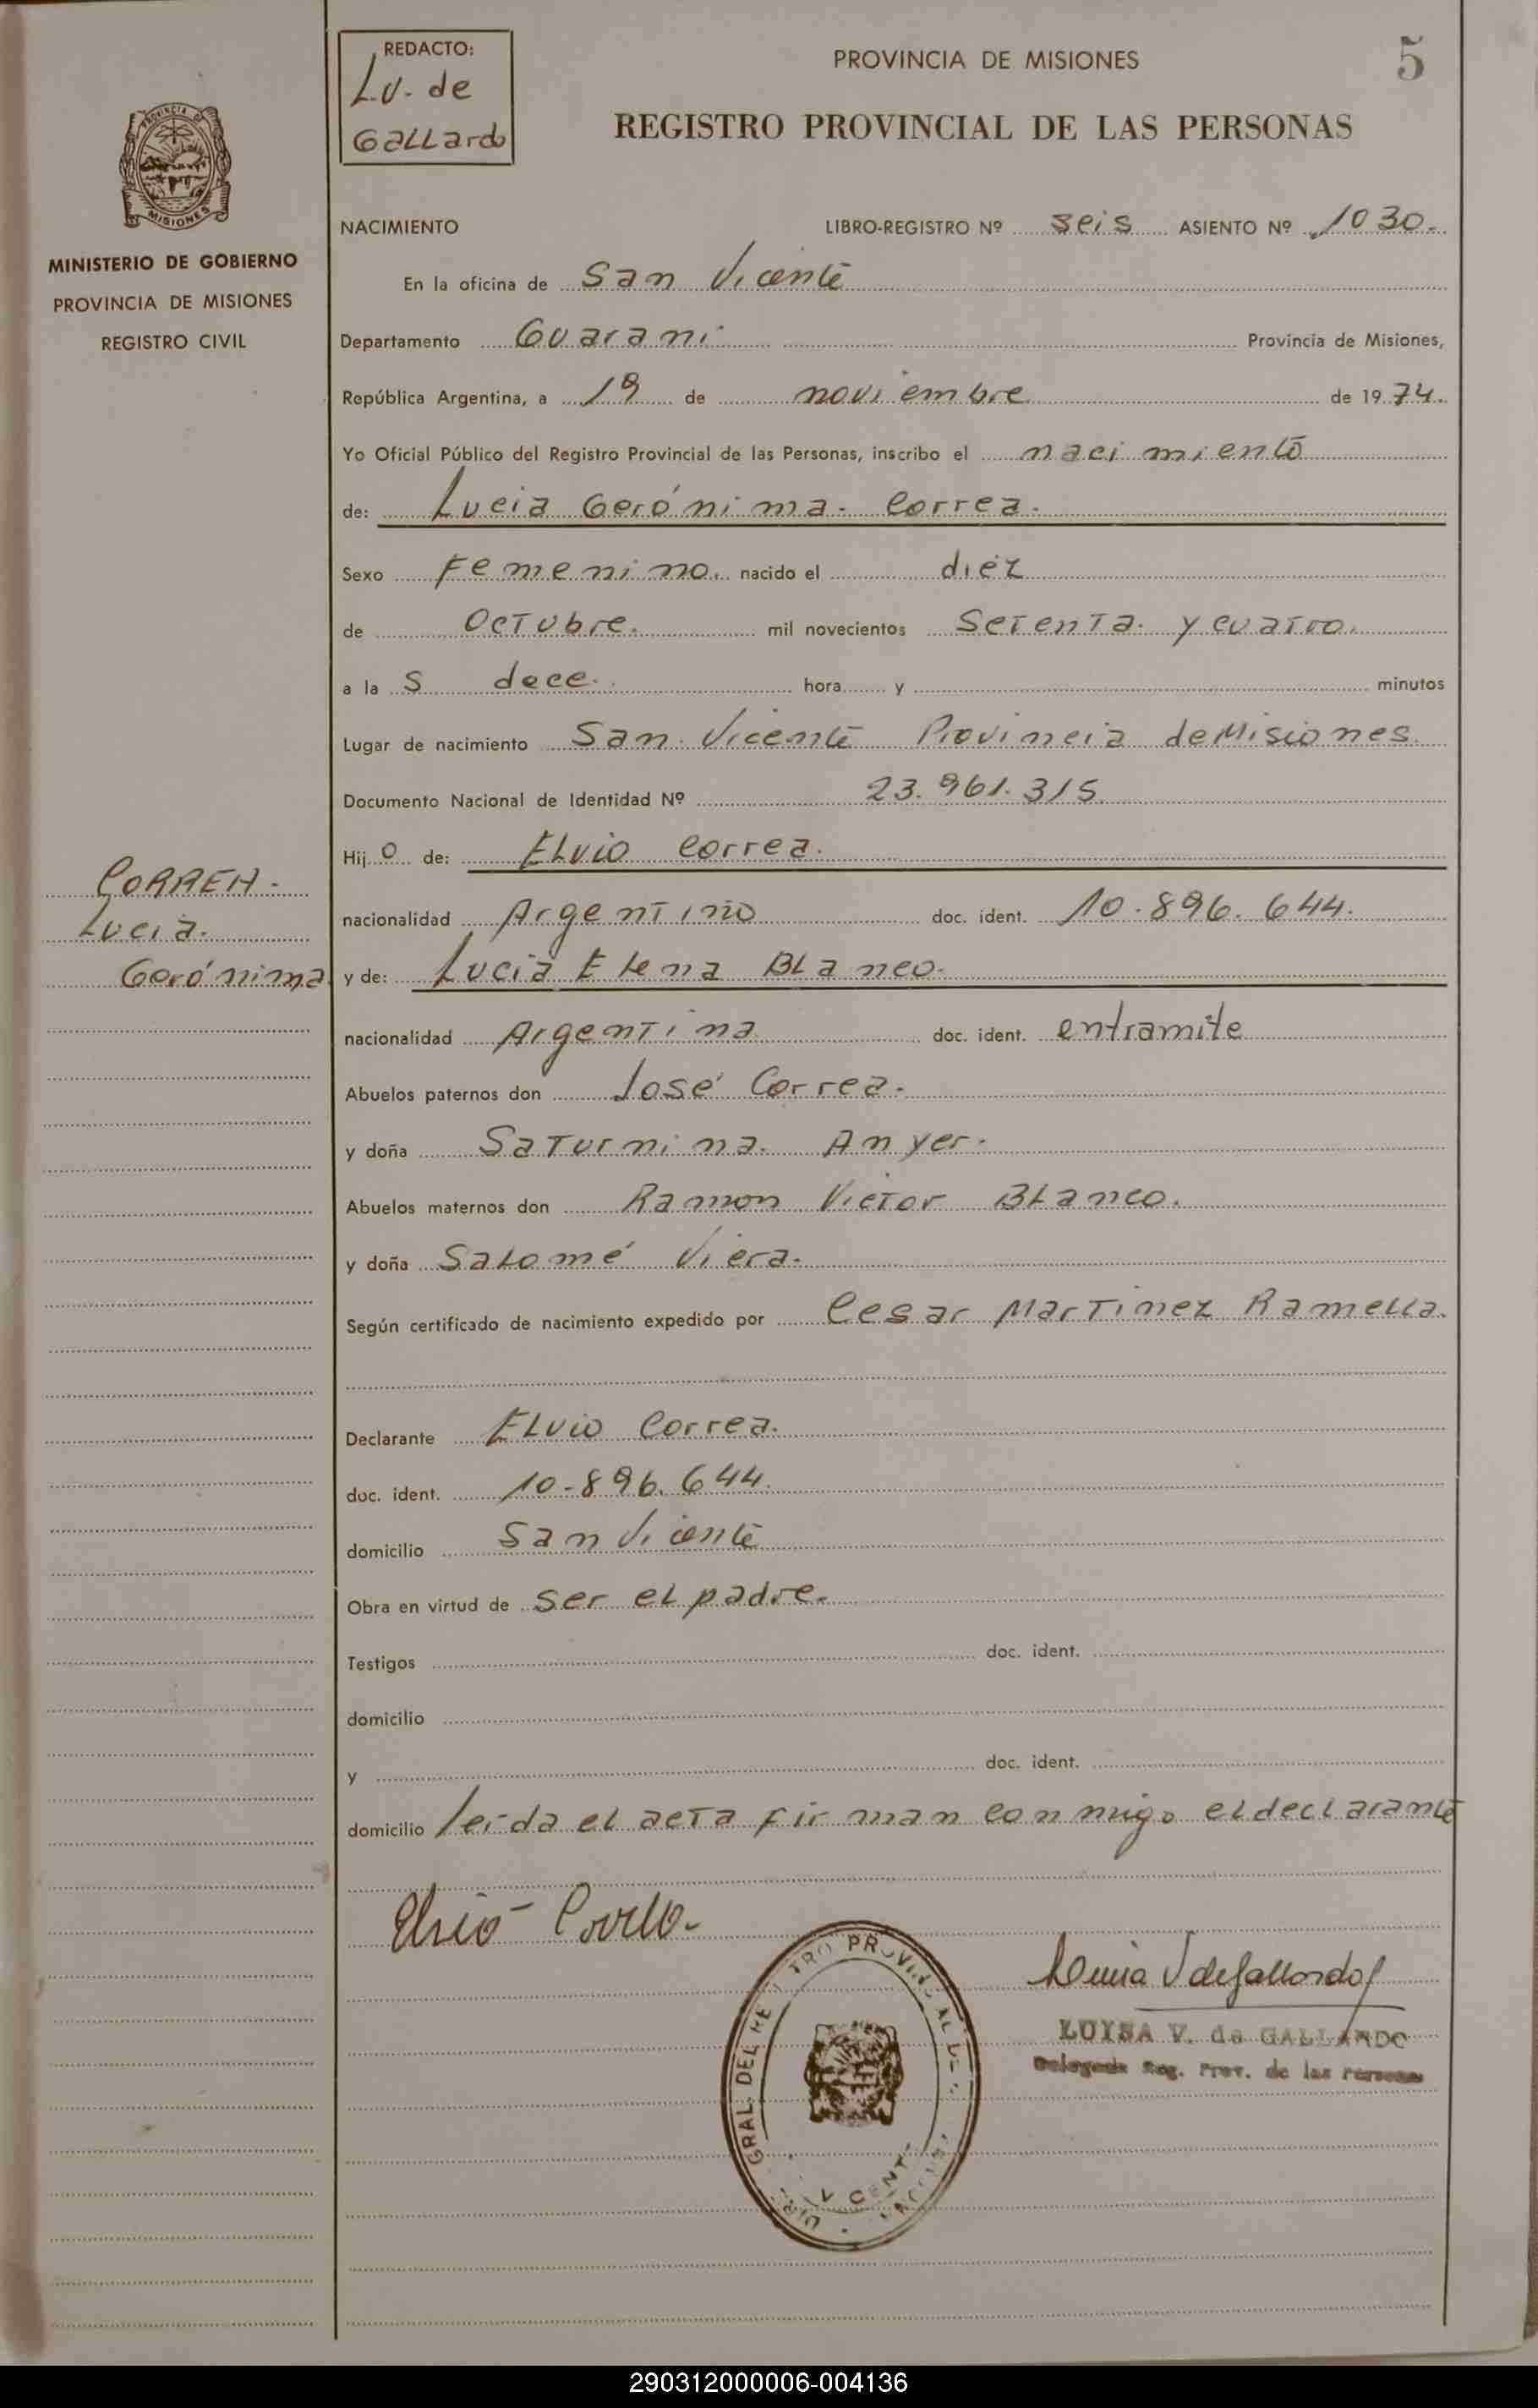 REDACTO:
L.V. de
Gallardo
PROVINCIA DE MISIONES
5
REGISTRO PROVINCIAL DE LAS PERSONAS
PROVINCIA DE
MISIONES
MINISTERIO DE GOBIERNO
PROVINCIA DE MISIONES
REGISTRO CIVIL
NACIMIENTO LIBRO-REGISTRO Nº seis ASIENTO Nº 1030.
En la oficina de San Vicente
Departamento Guarani Provincia de Misiones,
República Argentina, a 19 de noviembre de 1974.
Yo Oficial Público del Registro Provincial de las Personas, inscribo el nacimiento
de: Lucia Gerónima. Correa.
Sexo Femenino. nacido el diéz
de Octubre. mil novecientos Setenta y cuatro.
a la s doce. hora y minutos
Lugar de nacimiento San Vicente Provincia de Misiones
Documento Nacional de Identidad Nº 23.961.315.
Hij o de: Elvio Correa.
CORREA.
Lucia.
Gerónima
nacionalidad Argentino doc. ident. 10.896.644.
y de: Lucia Elena Blanco.
nacionalidad Argentina doc. ident. entramite
Abuelos paternos don José Correa.
y doña Saturnina. Anyer.
Abuelos maternos don Ramon Victor Blanco.
y doña Salomé Viera.
Según certificado de nacimiento expedido por Cesar Martinez Ramella.
Declarante Elvio Correa.
doc. ident. 10-896.644.
domicilio San Vicente
Obra en virtud de ser el padre.
Testigos doc. ident.
domicilio
y doc. ident.
domicilio leida el acta firman conmigo el declarante
Elvio Correa.
Luisa V de Gallardo
LUISA V. de GALLARDO
Delegada Reg. Prov. de las Personas
GRAL. DEL REGISTRO PROVINCIAL DE
290312000006-004136